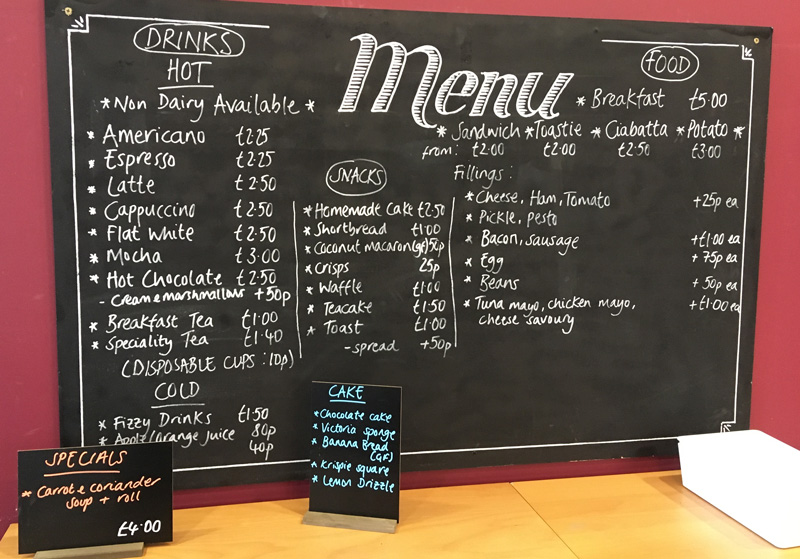 Menu
DRINKS
HOT
* Non Dairy Available *
* Americano £2.25
* Espresso £2.25
* Latte £2.50
* Cappuccino £2.50
* Flat White £2.50
* Mocha £3.00
* Hot Chocolate £2.50
- cream & marshmallows +50p
* Breakfast Tea £1.00
* Speciality Tea £1.40
(DISPOSABLE CUPS : 10p)
COLD
* Fizzy Drinks £1.50
* Apple/Orange Juice 80p
40p
SNACKS
* Homemade Cake £2.50
* Shortbread £1.00
* Coconut macaron (gf) 50p
* Crisps 25p
* Waffle £1.00
* Teacake £1.50
* Toast £1.00
- spread +50p
FOOD
* Breakfast £5.00
* Sandwich * Toastie * Ciabatta * Potato *
from: £2.00 £2.00 £2.50 £3.00
Fillings:
* Cheese, Ham, Tomato +25p ea
* Pickle, pesto
* Bacon, sausage +£1.00 ea
* Egg +75p ea
* Beans +50p ea
* Tuna mayo, chicken mayo, +£1.00 ea
cheese savoury
SPECIALS
* Carrot & coriander
soup + roll
£4.00
CAKE
* Chocolate cake
* Victoria sponge
* Banana Bread
(GF)
* Krispie square
* Lemon Drizzle